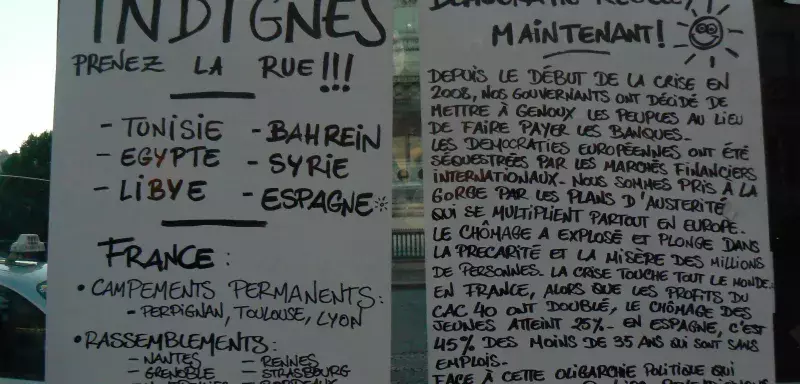 INDIGNÉS
PRENEZ LA RUE!!!
- TUNISIE
- EGYPTE
- LIBYE
- BAHREIN
- SYRIE
- ESPAGNE
FRANCE :
• CAMPEMENTS PERMANENTS:
- PERPIGNAN, TOULOUSE, LYON
• RASSEMBLEMENTS:
- NANTES
- GRENOBLE
- RENNES
- STRASBOURG
- BORDEAUX
DÉMOCRATIE RÉELLE,
MAINTENANT!
DEPUIS LE DÉBUT DE LA CRISE EN
2008, NOS GOUVERNANTS ONT DÉCIDÉ DE
METTRE À GENOUX LES PEUPLES AU LIEU
DE FAIRE PAYER LES BANQUES.
LES DEMOCRATIES EUROPÉENNES ONT ÉTÉ
SÉQUESTRÉES PAR LES MARCHÉS FINANCIERS
INTERNATIONAUX. NOUS SOMMES PRIS À LA
GORGE PAR LES PLANS D'AUSTERITÉ
QUI SE MULTIPLIENT PARTOUT EN EUROPE.
LE CHÔMAGE A EXPLOSÉ ET PLONGE DANS
LA PRECARITÉ ET LA MISÈRE DES MILLIONS
DE PERSONNES. LA CRISE TOUCHE TOUT LE MONDE.
EN FRANCE, ALORS QUE LES PROFITS DU
CAC 40 ONT DOUBLÉ, LE CHÔMAGE DES
JEUNES ATTEINT 25%. EN ESPAGNE, C'EST
45% DES MOINS DE 35 ANS QUI SONT SANS
EMPLOIS.
FACE À CETTE OLIGARCHIE POLITIQUE QUI